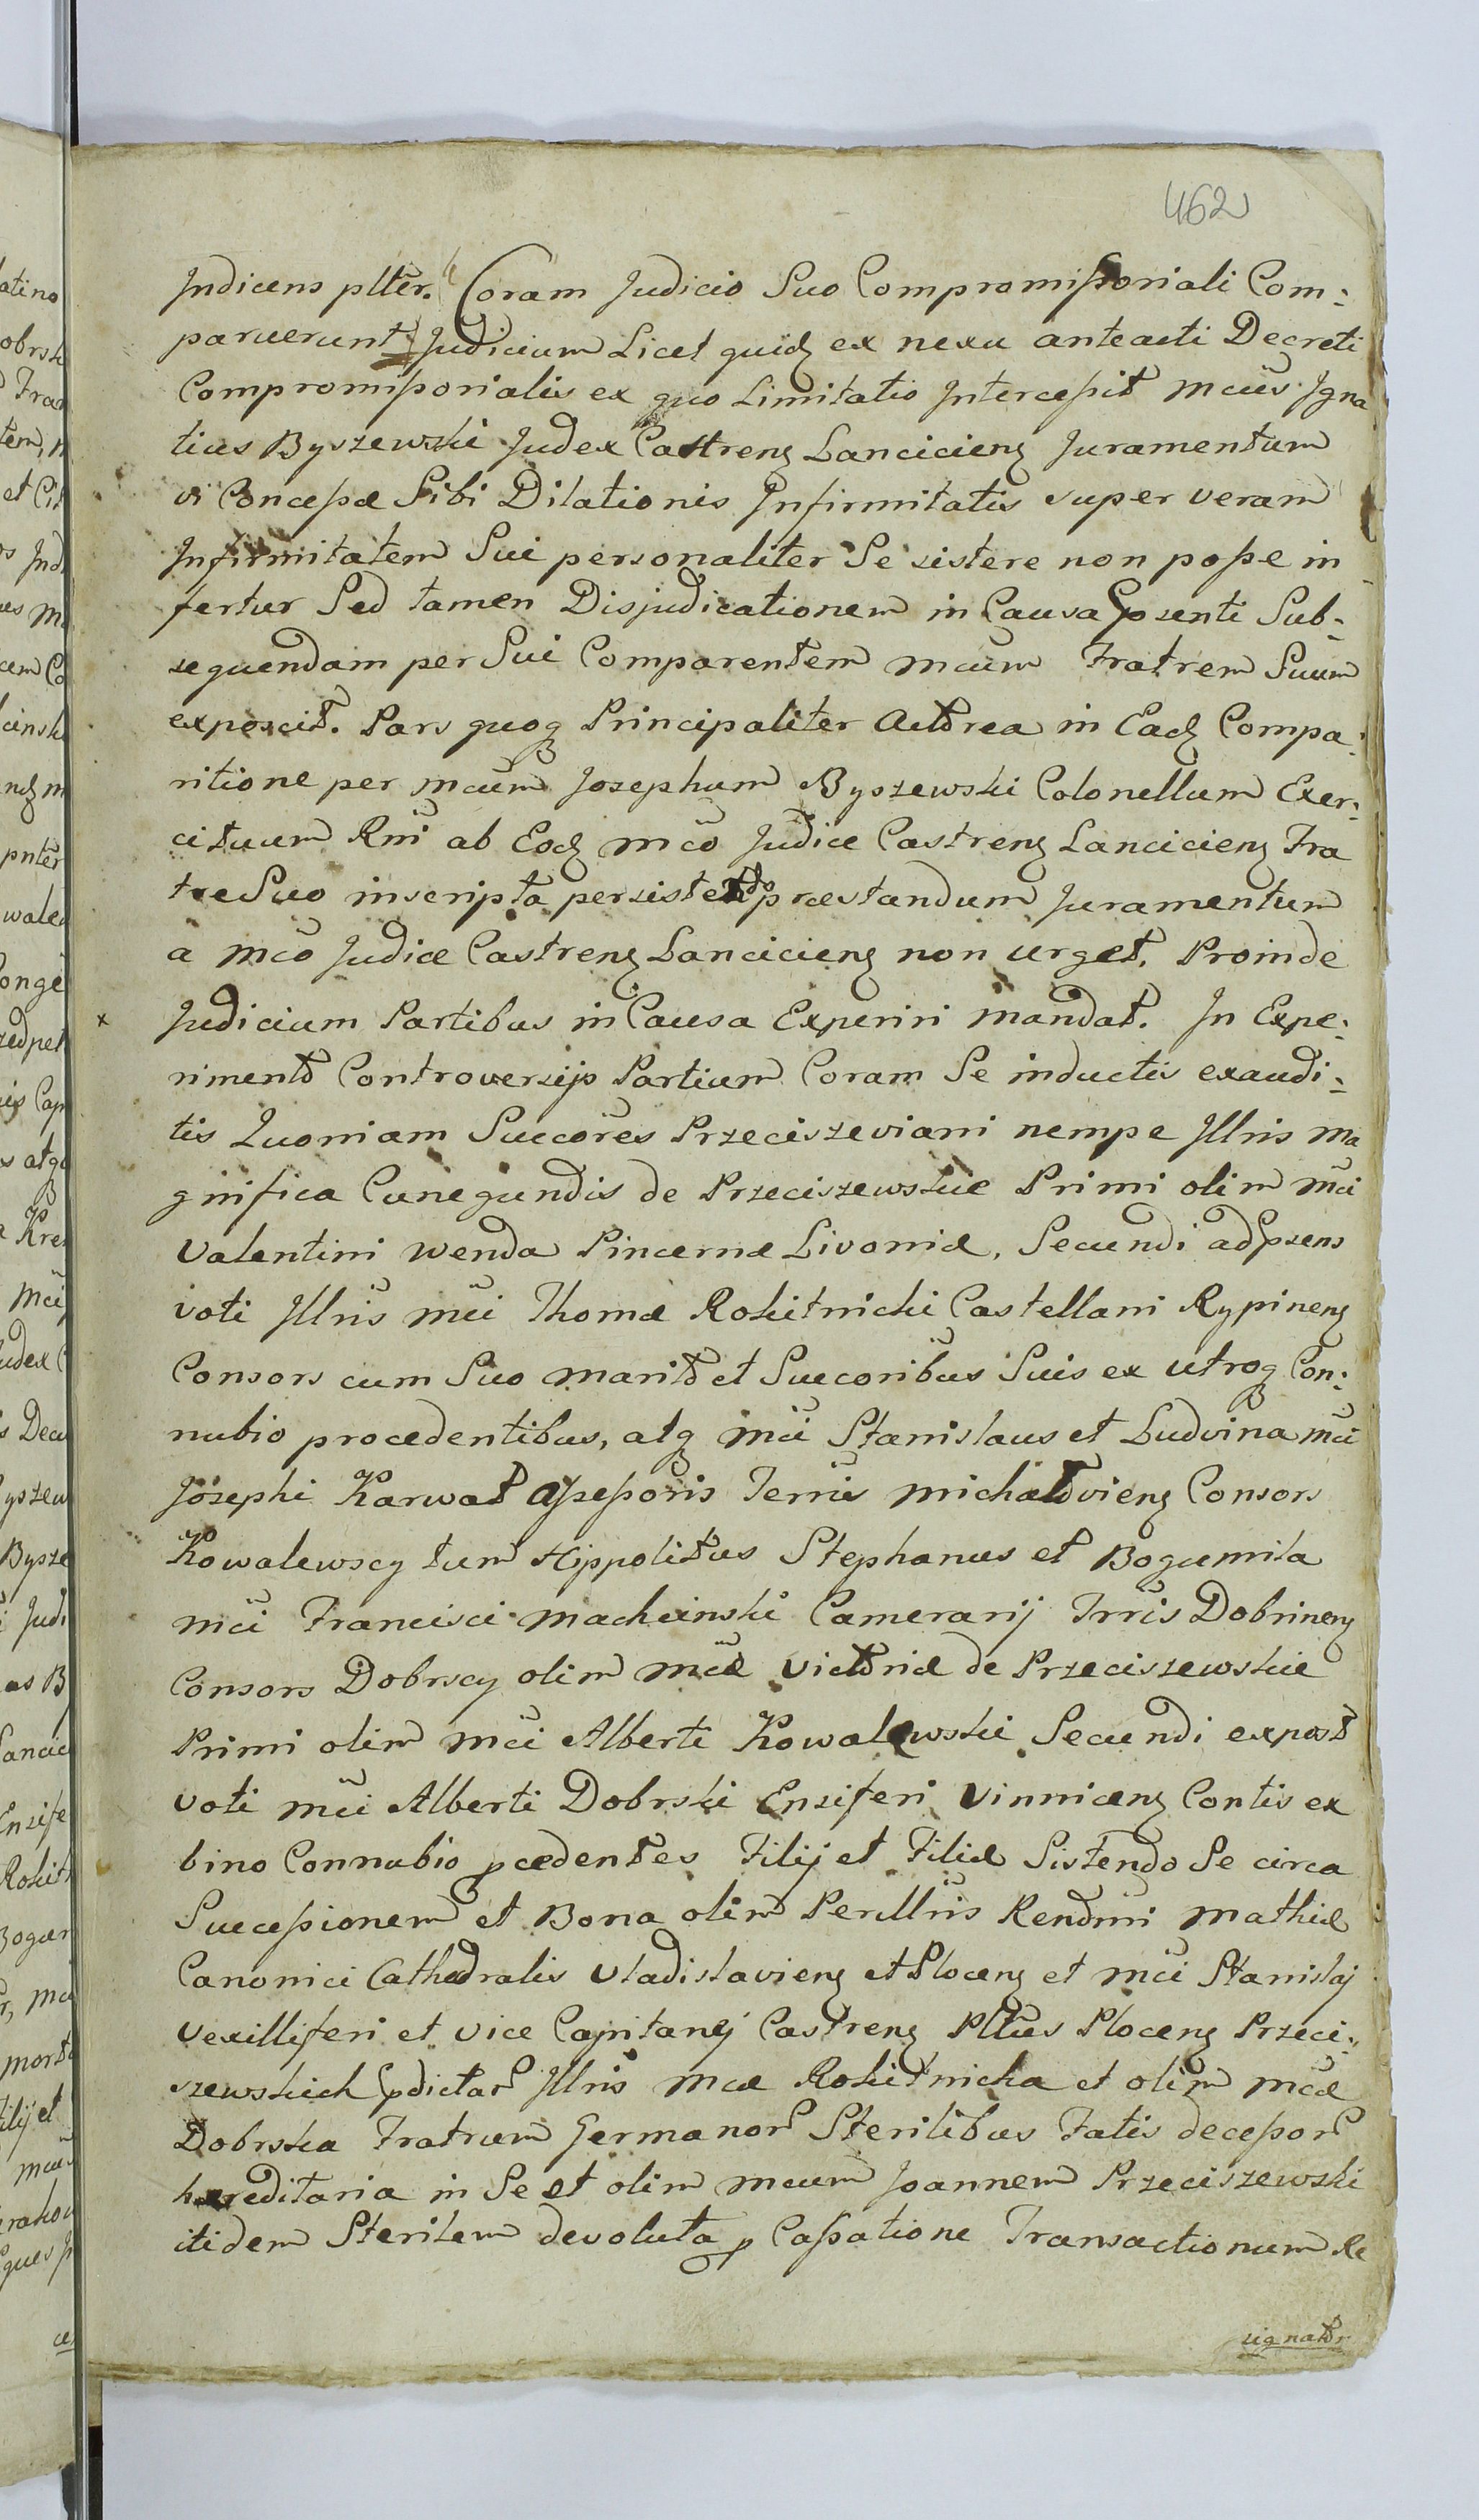 462
Judicens plter. Coram Judicio Suo Compromissoriali Com:
paruerunt Judicium Licet quidz ex nexu anteacti Decreti
Compromissorialis ex quo Limitatio Intercessit Mcus Igna
tius Byszewski Judex Castrenz Lancicienz Juramentum
vi Concessæ Sibi Dilationis Infirmitatis super veram
Infirmitatem Sui personaliter Se sistere non posse in
fertur Sed tamen Disjudicationem in Causa psenti Sub:
sequendam per Sui Comparentem Mcum Fratrem Suum
exposcit. Pars quoq Principaliter Actorea in Eadz Compa:
ritione per Mcum Josephum Byszewski Colonellum Exer:
cituum Rni ab Eodz Mco Judice Castrenz Lancicienz Fra
tre Suo inscripta persistendo præstandum Juramentum
a Mco Judice Castrenz Lancicienz non urget. Proinde
x Judicium Partibus in Causa Experiri mandat. In Expe:
rimento Controversijs Partium Coram Se inductis exaudi:
tis Quoniam Succores Przeciszeviani nempe Illris Ma
gnifica Cunegundis de Przeciszewskie Primi olim Mci
Valentini Wenda Pincernæ Livoniæ, Secundi ad psens
voti Illris Mci Thomæ Rokitnicki Castellani Rypinenz
Consors cum Suo marito et Succoribus Suis ex utroq Con:
nubio procedentibus, atq Mci Stanislaus et Ludvina Mci
Josephi Karwat Assessoris Terræ Michalovienz Consors
Kowalewscy tum Hippolitus Stephanus et Bogumila
Mci Francisci Machcinski Camerarij Trris Dobrinenz
Consors Dobrscy olim Mcæ Victoriæ de Przeciszewskie
Primi olim Mci Alberti Kowalewski Secundi expost
voti Mci Alberti Dobrski Ensiferi Vinnicenz Contis ex
bino Connubio pcedentes Filij et Filiæ Sistendo Se circa
Successionem et Bona olim Perillris Rendmi Mathiæ
Canonici Cathedralis Vladislavienz et Plocenz et Mci Stanislaj
Vexilliferi et Vice Capitanej Castrenz Pltus Plocenz Przeci:
szewskich pdictar Illris Mcæ Rokitnicka et olim Mcæ
Dobrska Fratrum Germanor Sterilibus Fatis decessor
hæreditaria in Se et olim Mcum Joannem Przeciszewski
itidem Sterilem devoluta p Cassatione Transactionum Re
signator